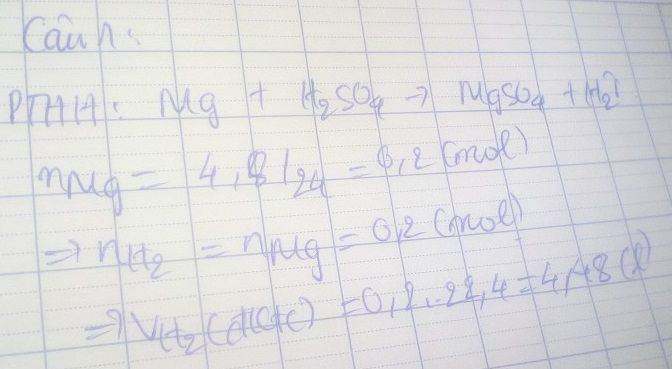 Câu 1:
PTHH: Mg + H₂SO₄ → MgSO₄ + H₂↑
nMg = 4,8/24 = 0,2 (mol)
⇒ nH₂ = nMg = 0,2 (mol)
⇒ VH₂(đktc) = 0,2 . 22,4 = 4,48 (l)